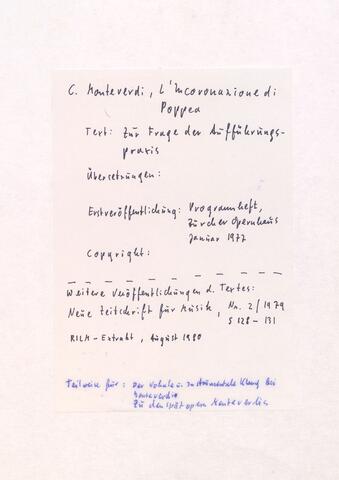 C. Monteverdi, L'Incoronazione di
Poppea
Text: Zur Frage der Aufführungs-
praxis
Übersetzungen:
Erstveröffentlichung: Programmheft,
Zürcher Opernhaus
Januar 1977
Copyright:
Weitere Veröffentlichungen d. Textes:
Neue Zeitschrift für Musik, No. 2/1979
S 128-131
RILM-Extrakt, August 1980
Teilweise für: Der vokale u. instrumentale Klang bei
Monteverdi
Zu den Spätopern Monteverdis